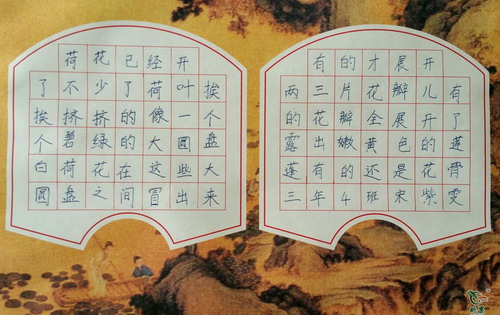 荷花已经开
了不少了荷叶挨
挨挤挤的像一个
个碧绿的大圆盘
白荷花在这些大
圆盘之间冒出来
有的才展开
两三片花瓣儿有
的花瓣全展开了
露出嫩黄色的莲
蓬有的还是花骨
三年4班宋紫雯